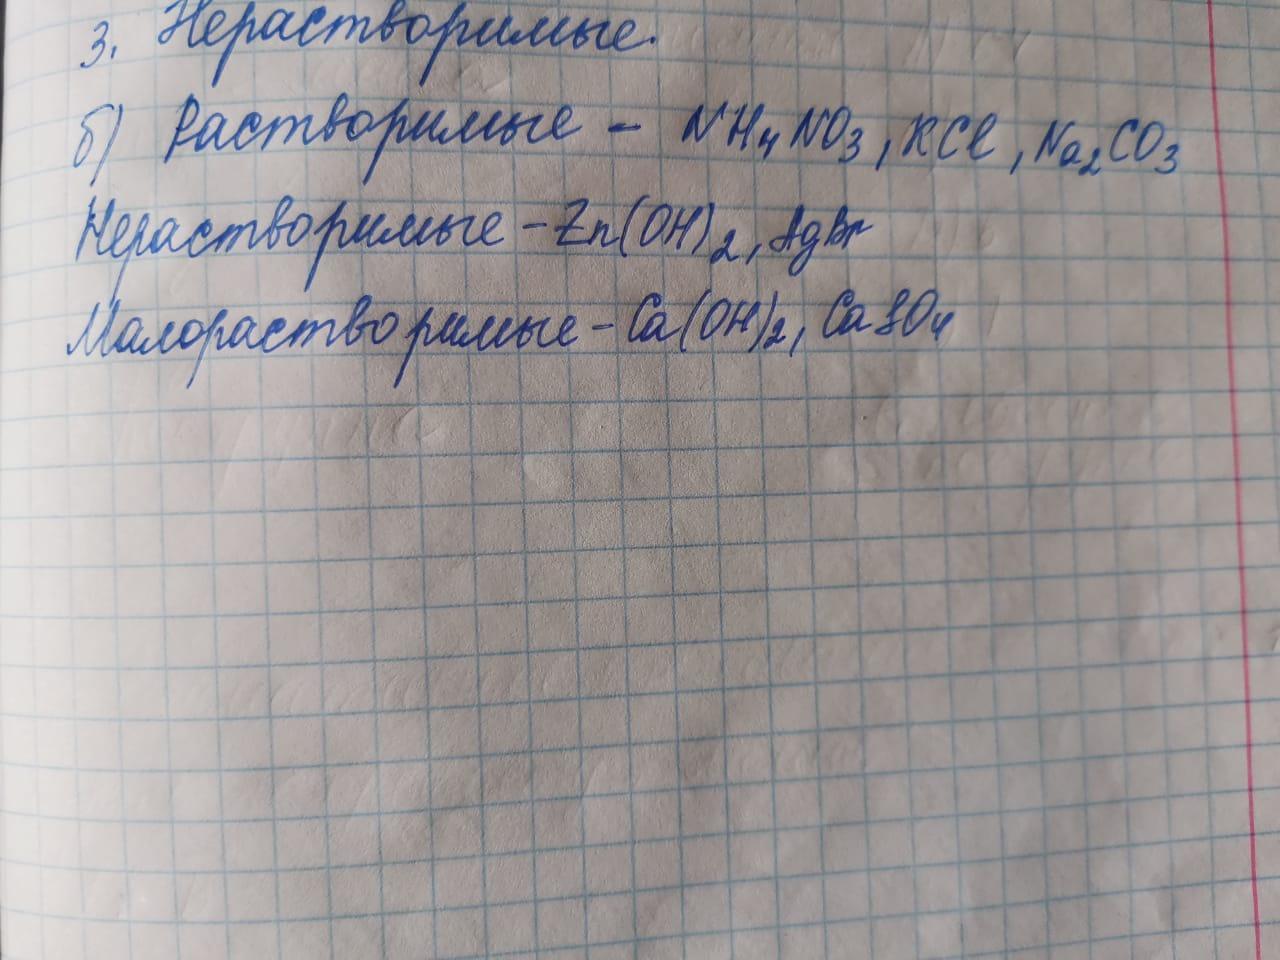 3. Нерастворимые.
б) Растворимые - NH₄NO₃, KCl, Na₂CO₃
Нерастворимые - Zn(OH)₂, AgBr
Малорастворимые - Ca(OH)₂, CaSO₄